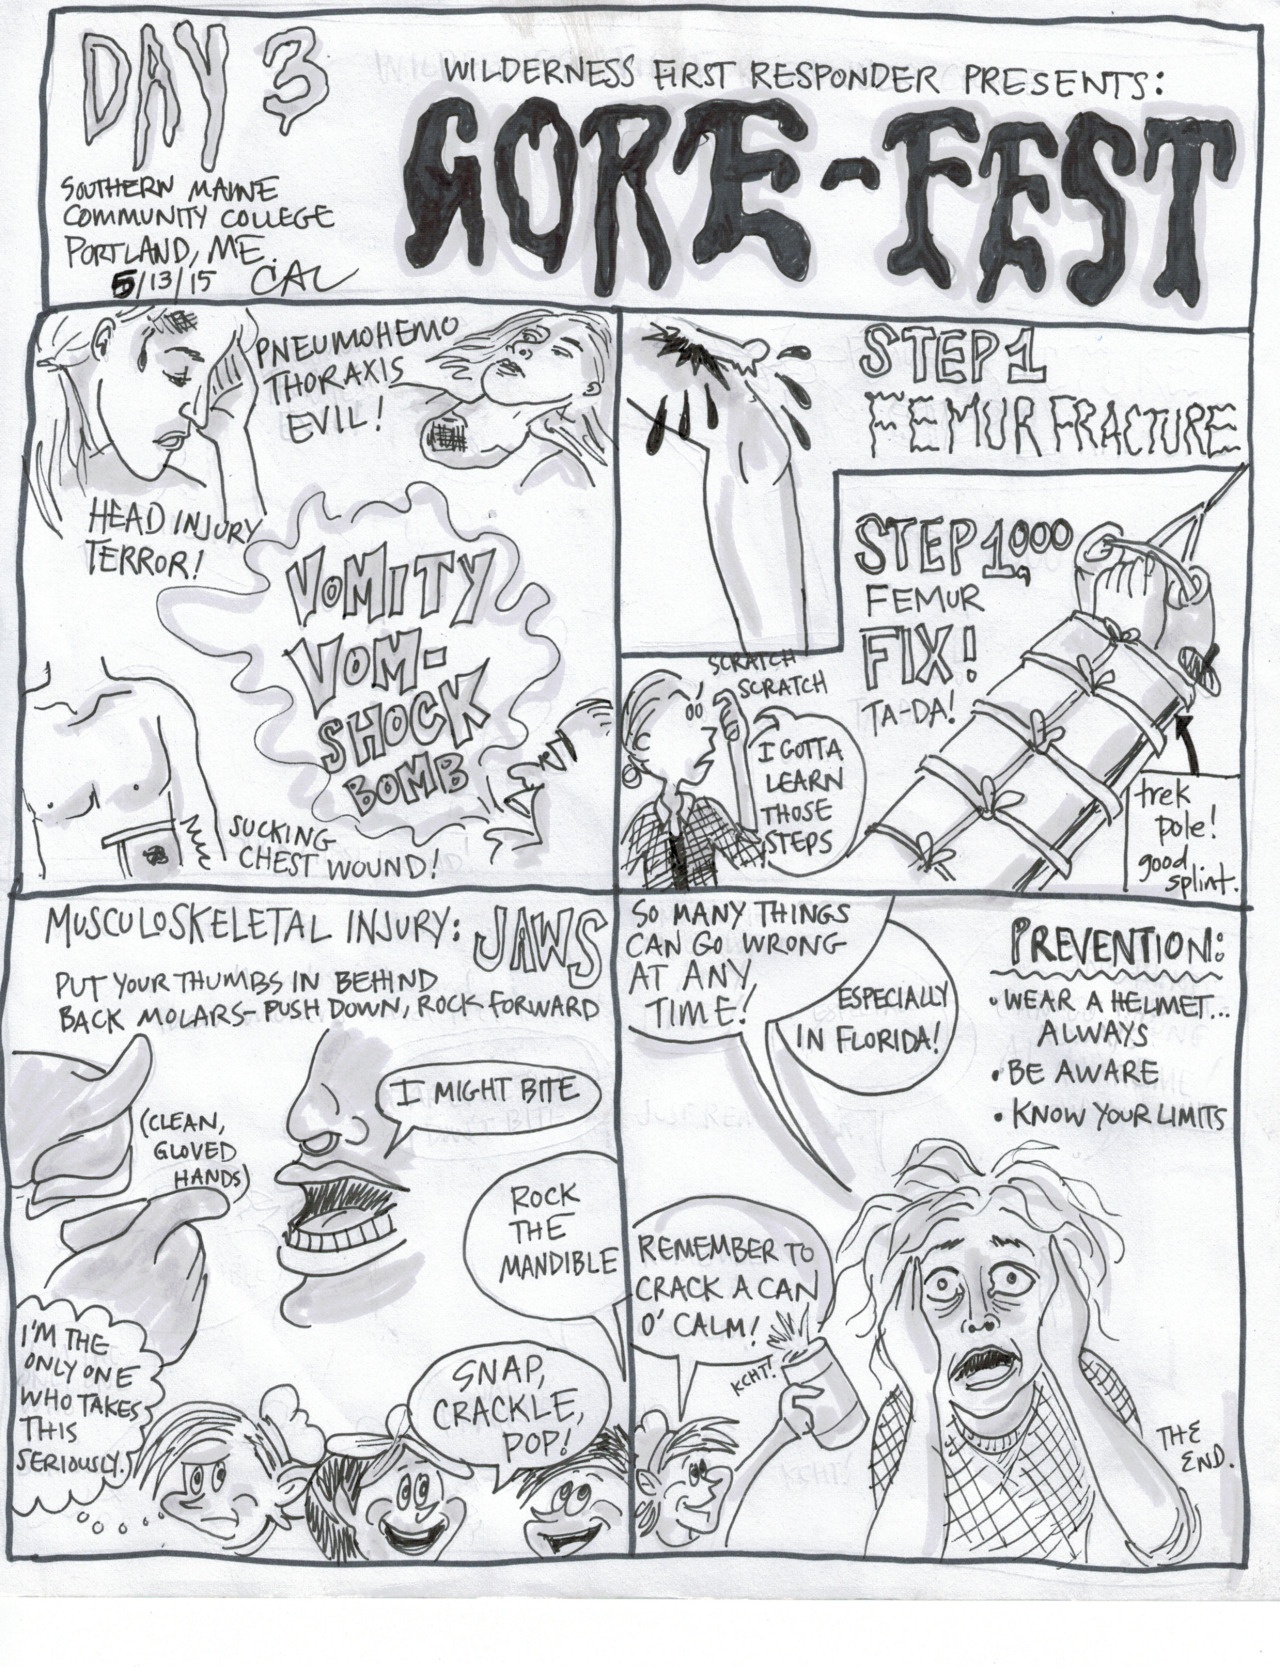 DAY 3
SOUTHERN MAINE
COMMUNITY COLLEGE
PORTLAND, ME.
5/13/15 CAL
WILDERNESS FIRST RESPONDER PRESENTS:
GORE-FEST
PNEUMOHEMO
THORAXIS
EVIL!
HEAD INJURY
TERROR!
VOMITY
VOM-
SHOCK
BOMB
SUCKING
CHEST WOUND!
STEP 1
FEMUR FRACTURE
STEP 1,000
FEMUR
FIX!
TA-DA!
SCRATCH
SCRATCH
I GOTTA
LEARN
THOSE
STEPS
trek
pole!
good
splint.
MUSCULOSKELETAL INJURY: JAWS
PUT YOUR THUMBS IN BEHIND
BACK MOLARS- PUSH DOWN, ROCK FORWARD
(CLEAN,
GLOVED
HANDS)
I MIGHT BITE
ROCK
THE
MANDIBLE
I'M THE
ONLY ONE
WHO TAKES
THIS
SERIOUSLY.
SNAP,
CRACKLE,
POP!
SO MANY THINGS
CAN GO WRONG
AT ANY
TIME!
ESPECIALLY
IN FLORIDA!
PREVENTION:
• WEAR A HELMET...
ALWAYS
• BE AWARE
• KNOW YOUR LIMITS
REMEMBER TO
CRACK A CAN
O' CALM!
KCHT!
THE
END.